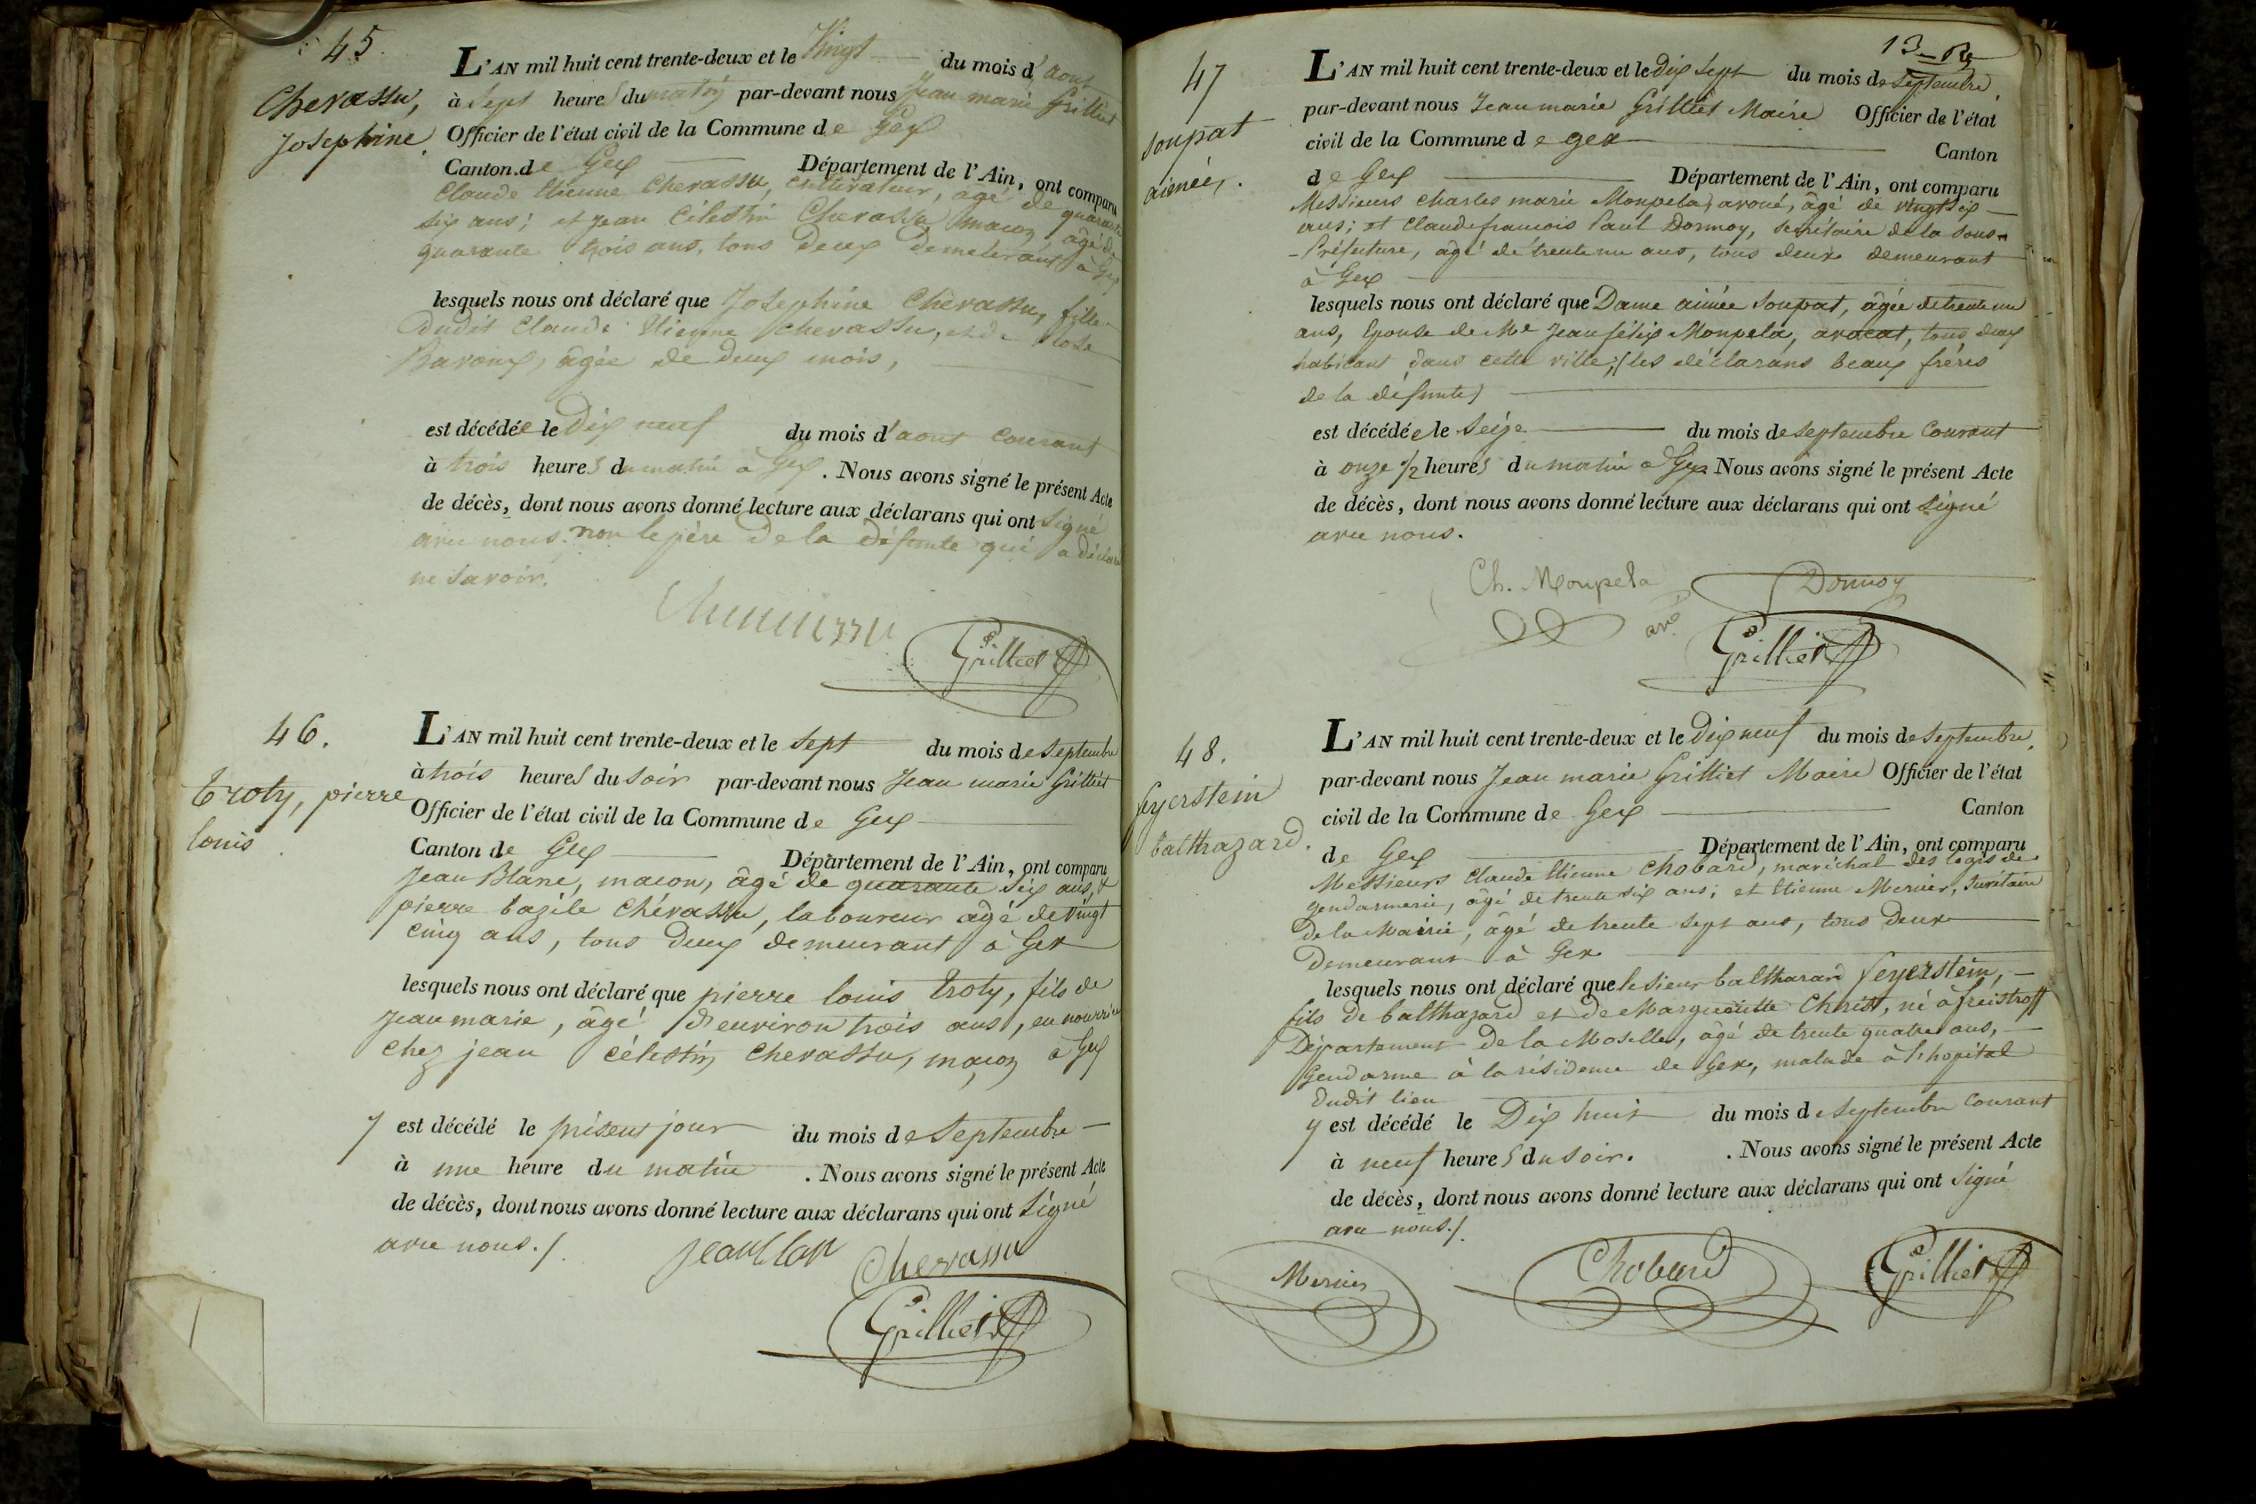 45.
Chevassu,
Josephine.
L'AN mil huit cent trente-deux et le Vingt du mois d'aout
à sept heures du matin par-devant nous Jean marie Grilliet
Officier de l'état civil de la Commune de Gex
Canton de Gex Département de l'Ain, ont comparu
Claude Etienne Chevassu, cultivateur, âgé de quarante
six ans; et Jean Célestin Chevassu, maçon, âgé de
quarante trois ans, tous deux demeurant à Gex
lesquels nous ont déclaré que Josephine Chevassu, fille
dudit Claude Etienne Chevassu, et de Rose
Baroux, âgée de deux mois,
est décédée le Dix neuf du mois d'aout courant
à trois heures du matin à Gex. Nous avons signé le présent Acte
de décès, dont nous avons donné lecture aux déclarans qui ont signé
avec nous. non le père de la défunte qui a déclaré
ne savoir.
Grilliet
46.
troty, pierre
louis.
L'AN mil huit cent trente-deux et le sept du mois de septembre
à trois heures du soir par-devant nous Jean marie Grilliet
Officier de l'état civil de la Commune de Gex
Canton de Gex Département de l'Ain, ont comparu
Jean Blanc, maçon, âgé de quarante six ans, &
pierre bazile Chévassu, laboureur âgé de vingt
cinq ans, tous deux demeurant à Gex
lesquels nous ont déclaré que pierre louis troty, fils de
Jean marie, âgé d'environ trois ans, en nourrice
chez jean célestin chevassu, maçon à Gex
y est décédé le présent jour du mois de septembre
à une heure du matin. Nous avons signé le présent Acte
de décès, dont nous avons donné lecture aux déclarans qui ont signé
avec nous./.
Chevassu
Grilliet
13
47
soupat
aimée.
L'AN mil huit cent trente-deux et le dix sept du mois de septembre,
par-devant nous Jean marie Grilliet Maire Officier de l'état
civil de la Commune de gex Canton
de Gex Département de l'Ain, ont comparu
Messieurs charles marie Monpela, avoué, âgé de vingt six
ans; et Claude françois Paul Dormoy, secrétaire de la sous-
-Préfecture, âgé de trente un ans, tous deux demeurant
à Gex
lesquels nous ont déclaré que Dame aimée soupat, âgée de trente un
ans, Epouse de Me Jean félix Monpela, avocat, tous deux
habitant dans cette ville; (les déclarans beaux frères
de la défunte)
est décédée le seize du mois de septembre courant
à onze 1/2 heures du matin à Gex Nous avons signé le présent Acte
de décès, dont nous avons donné lecture aux déclarans qui ont signé
avec nous.
Ch. Monpela avé
Dormoy
Grilliet
48.
feyerstein
balthazard.
L'AN mil huit cent trente-deux et le Dix neuf du mois de septembre,
par-devant nous Jean marie Grilliet Maire Officier de l'état
civil de la Commune de Gex Canton
de Gex Département de l'Ain, ont comparu
Messieurs Claude Etienne Chobard, maréchal des logis de
gendarmerie, âgé de trente six ans; et Etienne Mercier, secrétaire
de la Mairie, âgé de trente sept ans, tous deux
demeurant à Gex
lesquels nous ont déclaré que le sieur balthazard feyerstein,
fils de balthazard et de Marguerite Christ, né à freistroff
Département de la Moselle, âgé de trente quatre ans,
Gendarme à la résidence de Gex, malade à l'hopital
dudit lieu
y est décédé le Dix huit du mois de septembre courant
à neuf heures du soir. . Nous avons signé le présent Acte
de décès, dont nous avons donné lecture aux déclarans qui ont signé
avec nous./.
Mercier Chobard Grilliet